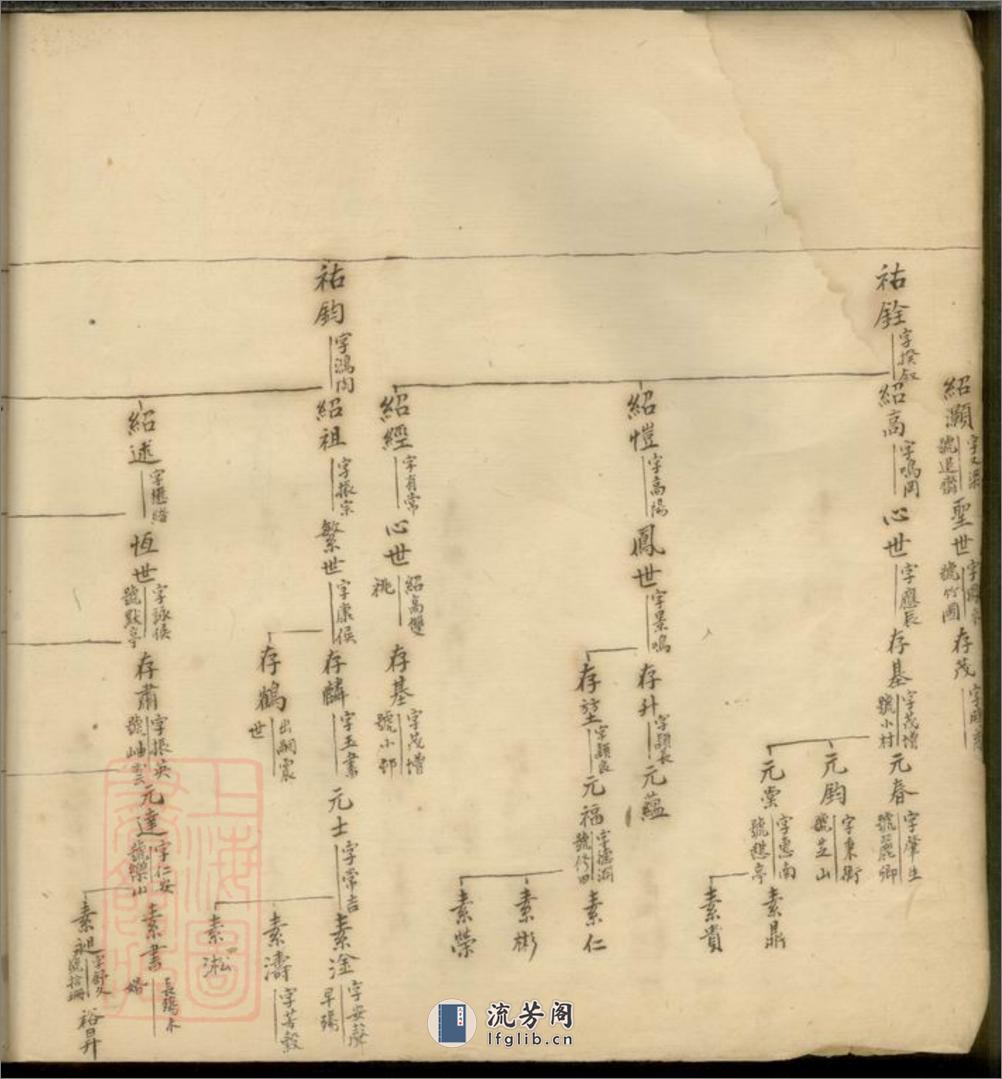 紹顯
號退齋
聖世
號竹圃
存茂
祐銓
字揆叙
紹高
字鳴岡
心世
字應辰
存基
字茂增
號小村
元春
字肇生
號麗卿
元鈞
字秉衡
號芝山
元棠
字惠南
號憩亭
素鼎
素貴
紹愷
字高陽
鳳世
字景鳴
存升
字顯長
元蘊
存望
字顯良
元福
素仁
素彬
素榮
紹經
字有常
心世
紹高雙
祧
存基
字茂增
號小邨
祐鈞
字鴻陶
紹祖
字振宗
繁世
字康侯
存麟
字玉書
元士
字常吉
素淦
字安瀾
早殤
素濤
字若穀
素淞
存鶴
出嗣震
世
紹述
字懋緒
恆世
字詠侯
號默亭
存肅
字振英
號岫雲
元達
字仁安
號樂山
素書
長殤未
婚
素昶
字舒久
號拾珊
裕昇
上海圖
書館藏
流芳阁
lfglib.cn